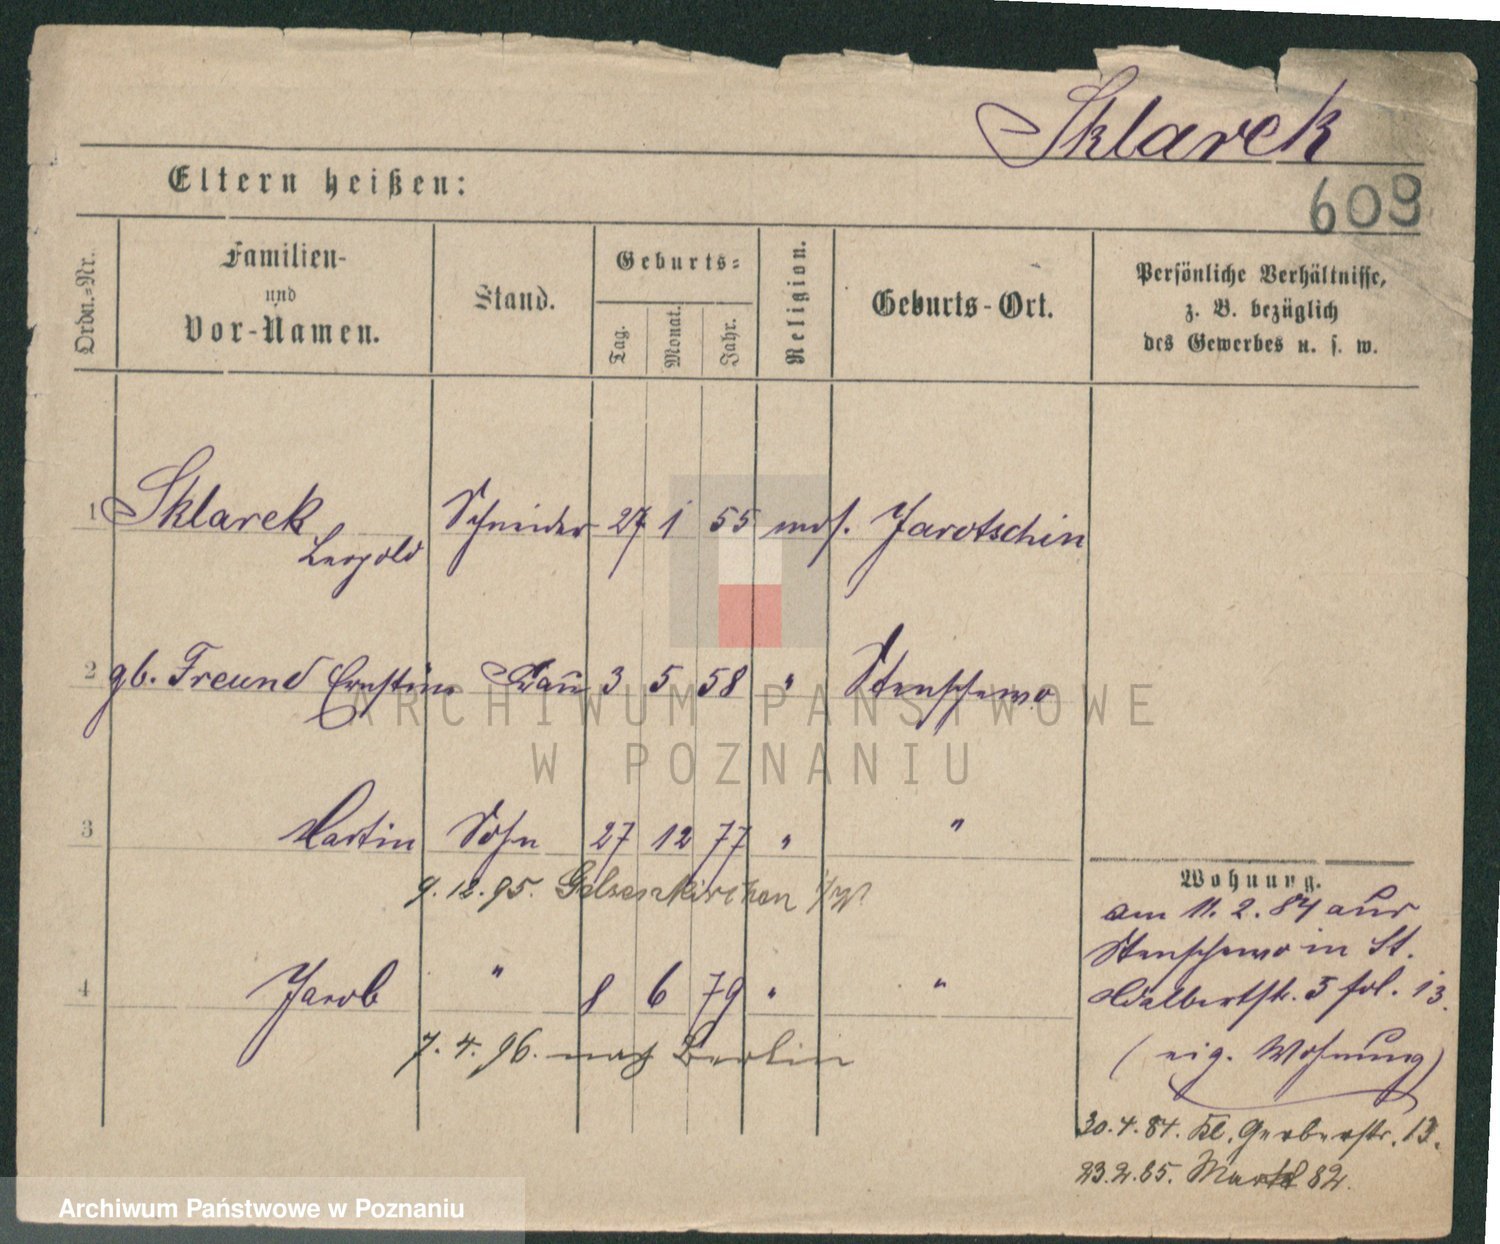 Sklarek
609
Eltern heißen:
Ordn.-Nr.
Familien-
und
Vor-Namen.
Stand.
Geburts-
Tag.
Monat.
Jahr.
Religion.
Geburts-Ort.
Persönliche Verhältnisse,
z. B. bezüglich
des Gewerbes u. s. w.
1 Sklarek Schneider 27 1 55 mos. Jarotschin
Leopold
2 gb. Freund Ernstine Frau 3 5 58 " Stenschewo
ARCHIWUM PAŃSTWOWE
W POZNANIU
3 Martin Sohn 27 12 77 " "
9.12.95. Gelsenkirchen
4 Jacob " 8 6 79 " "
7.4.96. nach Berlin
Wohnung.
am 11.2.84 aus
Stenschewo in St.
Adalbertstr. 5 fol. 13.
(eig. Wohnung)
30.4.84. Kl. Gerberstr. 13.
23.2.85. Markt 82.
Archiwum Państwowe w Poznaniu